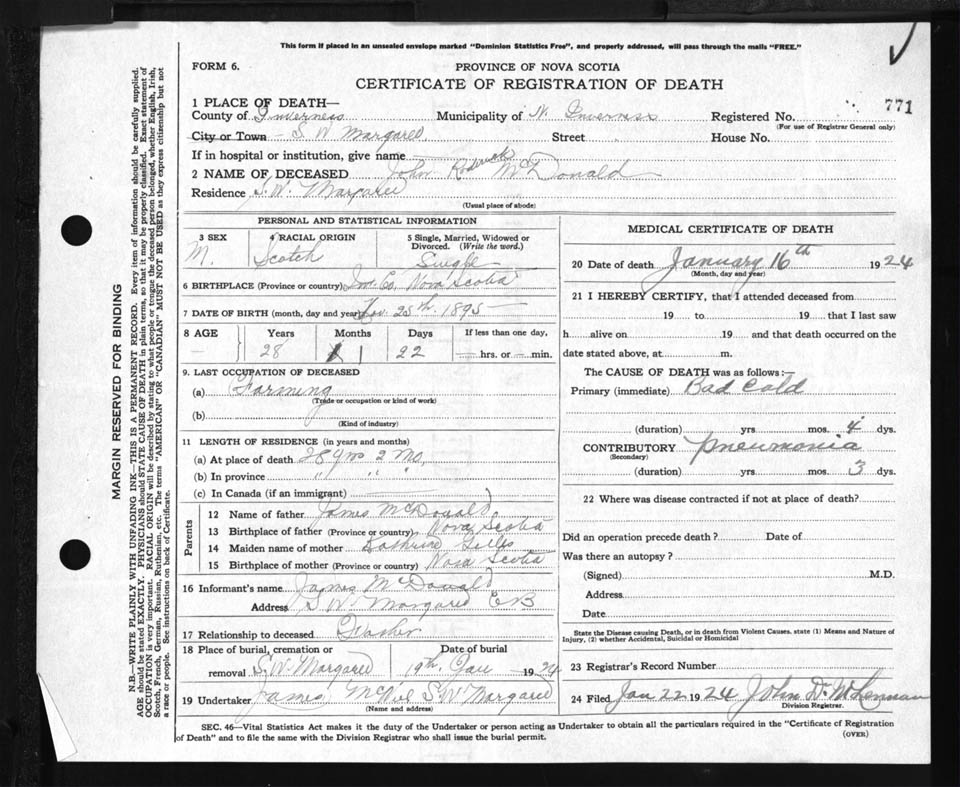 This form if placed in an unsealed envelope marked "Dominion Statistics Free", and properly addressed, will pass through the mails "FREE."
FORM 6.
PROVINCE OF NOVA SCOTIA
CERTIFICATE OF REGISTRATION OF DEATH
771
1 PLACE OF DEATH—
County of Inverness Municipality of N. Inverness Registered No.
(For use of Registrar General only)
City or Town S. W. Margaree Street House No.
If in hospital or institution, give name
2 NAME OF DECEASED John Roderick McDonald
Residence S. W. Margaree
(Usual place of abode)
PERSONAL AND STATISTICAL INFORMATION
3 SEX 4 RACIAL ORIGIN 5 Single, Married, Widowed or Divorced. (Write the word.)
M. Scotch Single
6 BIRTHPLACE (Province or country) Inv. Co. Nova Scotia
7 DATE OF BIRTH (month, day and year) Nov. 25th. 1895
8 AGE Years Months Days If less than one day,
28 1 22 hrs. or min.
9. LAST OCCUPATION OF DECEASED
(a) Farming
(Trade or occupation or kind of work)
(b)
(Kind of industry)
11 LENGTH OF RESIDENCE (in years and months)
(a) At place of death 28 yrs 2 Mo.
(b) In province " " "
(c) In Canada (if an immigrant)
Parents
12 Name of father James McDonald
13 Birthplace of father (Province or country) Nova Scotia
14 Maiden name of mother Gillis
15 Birthplace of mother (Province or country) Nova Scotia
16 Informant's name James McDonald
Address S. W. Margaree CB
17 Relationship to deceased
18 Place of burial, cremation or removal S. W. Margaree Date of burial 19th. Jan 1924
19 Undertaker James McNeil S. W. Margaree
(Name and address)
MEDICAL CERTIFICATE OF DEATH
20 Date of death January 16th 1924
(Month, day and year)
21 I HEREBY CERTIFY, that I attended deceased from
19 to 19 that I last saw
h alive on 19 and that death occurred on the
date stated above, at m.
The CAUSE OF DEATH was as follows:—
Primary (immediate) Bad Cold
(duration) yrs. mos. 4 dys.
CONTRIBUTORY Pneumonia
(Secondary)
(duration) yrs. mos. 3 dys.
22 Where was disease contracted if not at place of death?
Did an operation precede death? Date of
Was there an autopsy?
(Signed) M.D.
Address
Date
State the Disease causing Death, or in death from Violent Causes. state (1) Means and Nature of
Injury, (2) whether Accidental, Suicidal or Homicidal
23 Registrar's Record Number
24 Filed Jan 22 1924 John D. McLennan
Division Registrar.
SEC. 46—Vital Statistics Act makes it the duty of the Undertaker or person acting as Undertaker to obtain all the particulars required in the "Certificate of Registration
of Death" and to file the same with the Division Registrar who shall issue the burial permit.
(OVER)
MARGIN RESERVED FOR BINDING
N.B.—WRITE PLAINLY WITH UNFADING INK—THIS IS A PERMANENT RECORD. Every item of information should be carefully supplied.
AGE should be stated EXACTLY. PHYSICIANS should STATE CAUSE OF DEATH in plain terms, so that it may be properly classified. Exact statement of
OCCUPATION is very important. RACIAL ORIGIN will be described by stating to what people or tongue the deceased person belonged, whether English, Irish,
Scotch, French, German, Russian, Ruthenian, etc. The terms "AMERICAN" or "CANADIAN" MUST NOT BE USED as they express citizenship but not
a race or people. See instructions on back of Certificate.